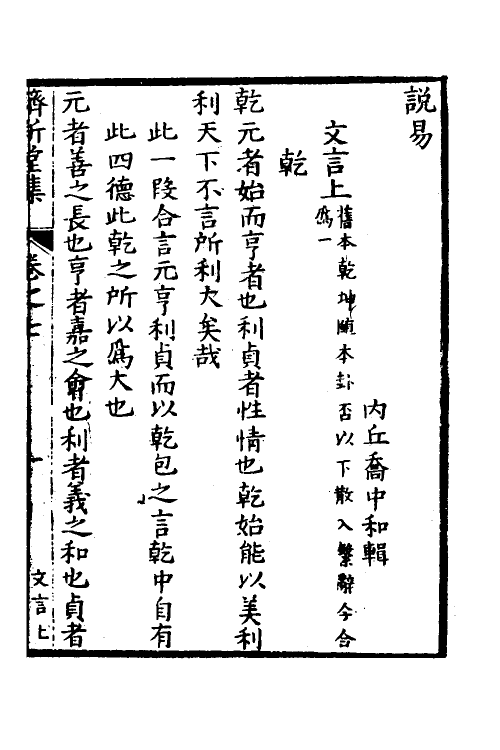 說易
內丘喬中和輯
文言上舊本乾坤隨本卦否以下散入繫辭今合
爲一
乾
乾元者始而亨者也利貞者性情也乾始能以美利
利天下不言所利大矣哉
此一段合言元亨利貞而以乾包之言乾中自有
此四德此乾之所以爲大也
元者善之長也亨者嘉之會也利者義之和也貞者
躋新堂集
卷之七
十
文言上